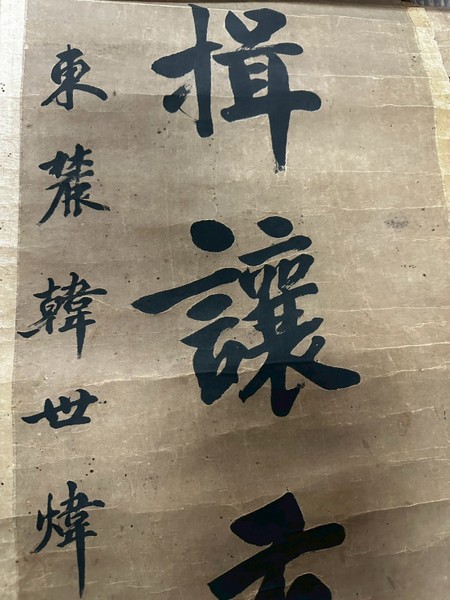 揖讓
東辳韓世煒